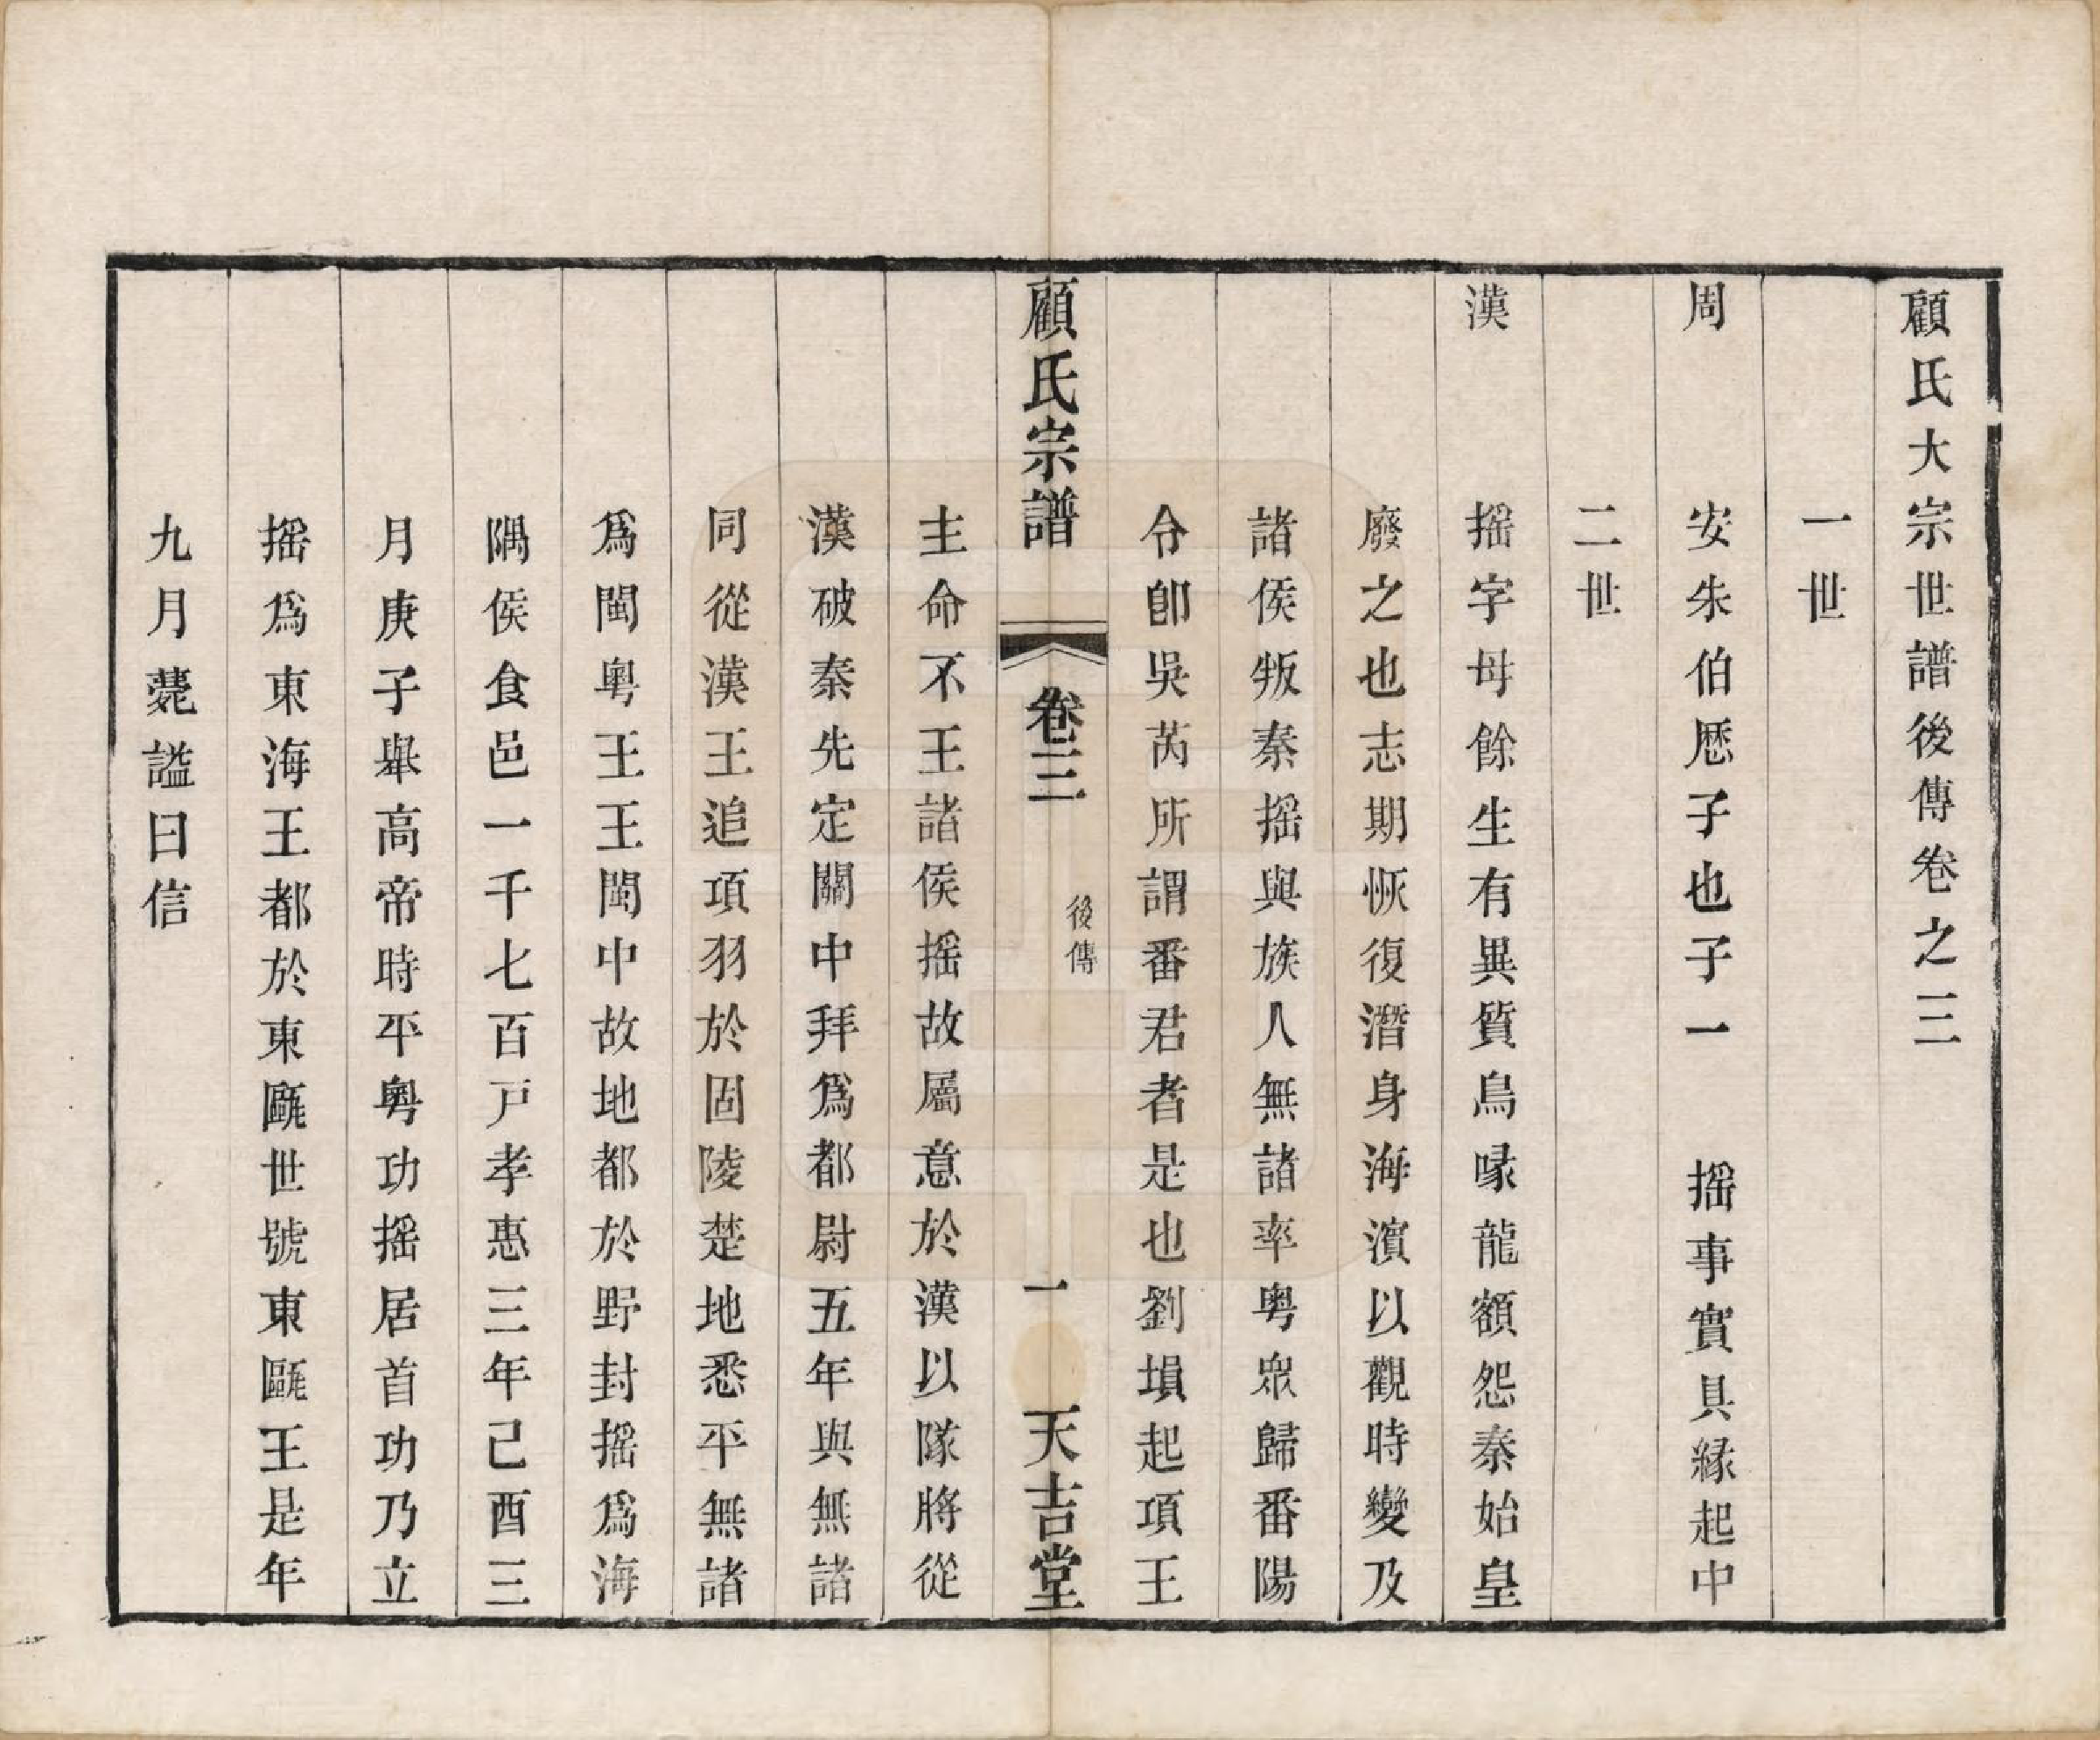 顧氏大宗世譜後傳卷之三
一世
周 安朱伯厯子也子一 揺事實具緣起中
二世
漢 揺字毋餘生有異質鳥喙龍額怨秦始皇
廢之也志期恢復潛身海濵以觀時變及
諸侯叛秦揺與族人無諸率粤眾歸番陽
令卽吳芮所謂番君者是也劉塤起項王
顧氏宗譜 卷三 後傳 一 天吉堂
主命不王諸侯揺故屬意於漢以隊將從
漢破秦先定關中拜爲都尉五年與無諸
同從漢王追項羽於固陵楚地悉平無諸
爲閩粤王王閩中故地都於野封揺爲海
隅侯食邑一千七百戸孝惠三年己酉三
月庚子舉高帝時平粤功揺居首功乃立
揺爲東海王都於東甌世號東甌王是年
九月薨謚曰信